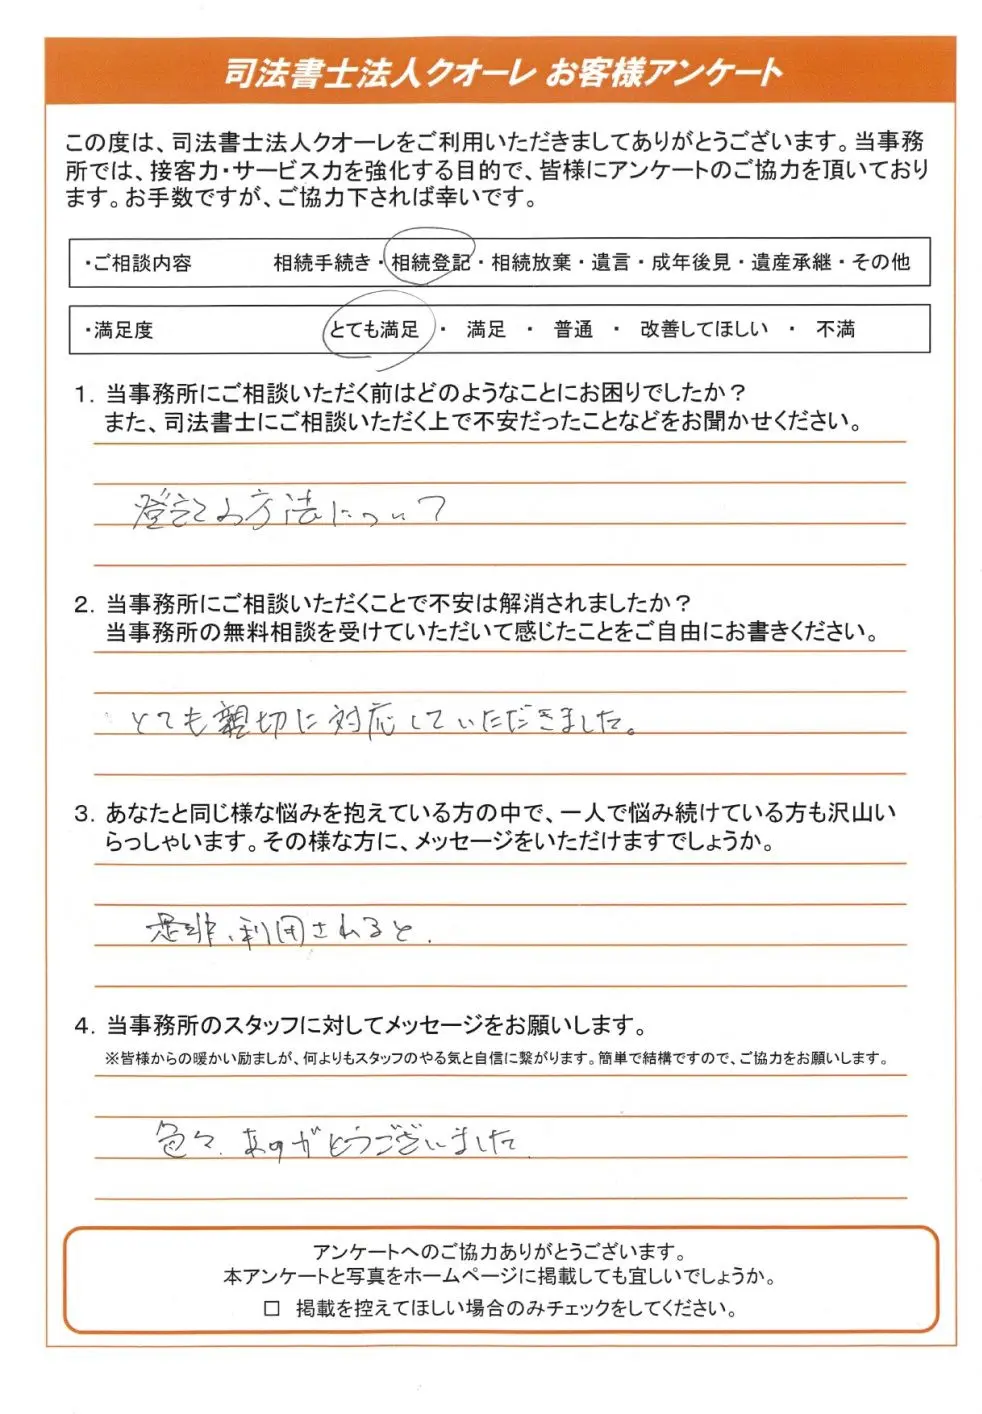 司法書士法人クオーレ お客様アンケート
この度は、司法書士法人クオーレをご利用いただきましてありがとうございます。当事務
所では、接客力・サービス力を強化する目的で、皆様にアンケートのご協力を頂いており
ます。お手数ですが、ご協力下されば幸いです。
・ご相談内容 相続手続き・相続登記・相続放棄・遺言・成年後見・遺産承継・その他
・満足度 とても満足 ・ 満足 ・ 普通 ・ 改善してほしい ・ 不満
1. 当事務所にご相談いただく前はどのようなことにお困りでしたか？
また、司法書士にご相談いただく上で不安だったことなどをお聞かせください。
登記の方法について
2. 当事務所にご相談いただくことで不安は解消されましたか？
当事務所の無料相談を受けていただいて感じたことをご自由にお書きください。
とても親切に対応していただきました。
3. あなたと同じ様な悩みを抱えている方の中で、一人で悩み続けている方も沢山い
らっしゃいます。その様な方に、メッセージをいただけますでしょうか。
是非、利用されると.
4. 当事務所のスタッフに対してメッセージをお願いします。
※皆様からの暖かい励ましが、何よりもスタッフのやる気と自信に繋がります。簡単で結構ですので、ご協力をお願いします。
色々、ありがとうございました
アンケートへのご協力ありがとうございます。
本アンケートと写真をホームページに掲載しても宜しいでしょうか。
□ 掲載を控えてほしい場合のみチェックをしてください。